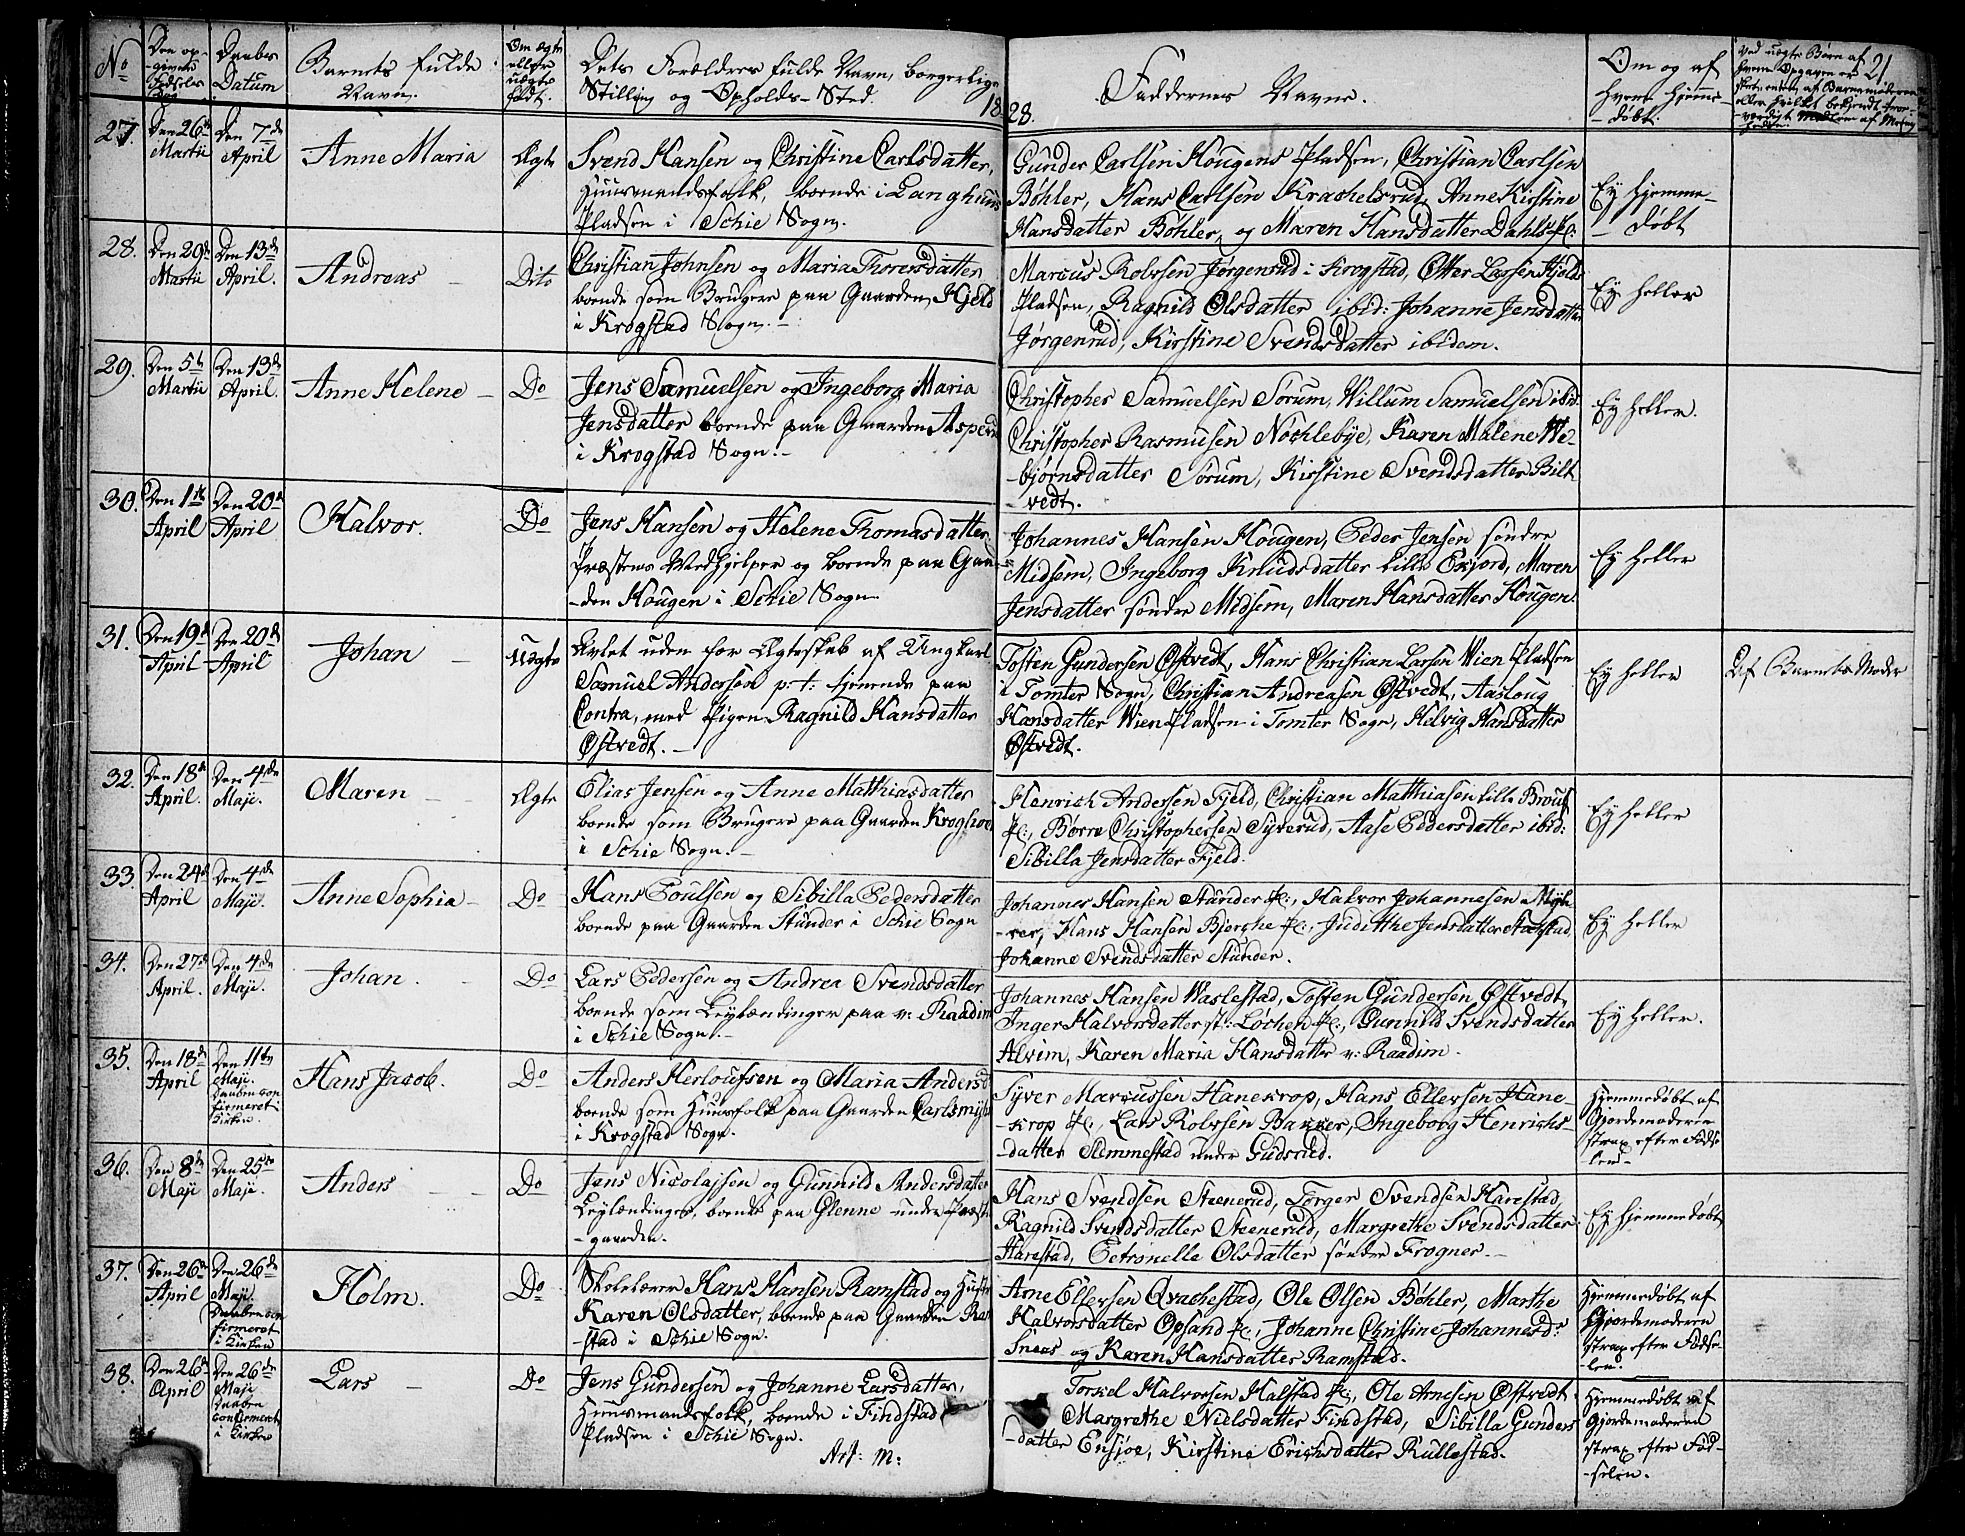 No
Den opgivne Fødsels Dag
Daabs Datum
Barnets fulde Navn.
Om ægte eller uægte født.
Dets Forældres fulde Navn, borgerlige
Stilling og Opholds-Sted.
18
28.
Faddernes Navne.
Om og af
hvem hjemme-
-døbt.
21.
Ved uægte Børn af
27.
Den 26de Martii
Den 7de April
Anne Maria
Ægte
Svend Hansen og Christine Carlsdatter,
Huusmandsfolk, boende i Langhuus
Pladsen i Schie Sogn.
Gunder Carlsen Hougens Pladsen, Christian Carlsen
Bøhler, Hans Carlsen Krachelsrud, Anne Kirstine
Hansdatter Bøhler, og Maren Hansdatter Dahls Pl:
Ey hjemme-
-døbt
28.
Den 29de Martii
Den 13de April.
Andreas
Dito
Christian Johnsen og Maria Thorersdatter
boende som Brugere paa Gaarden Kjeld
i Krogstad Sogn.
Marcus Rolvsen Jørgensrud i Krogstad, Otter Larsen Kjelds
Pladsen, Ragnild Olsdatter ibid: Johanne Jensdatter
Jørgenrud, Kirstine Svendsdatter ibidem.
Ey heller
29.
Den 5te Martii
Den 13de April.
Anne Helene
Do
Jens Samuelsen og Ingeborg Maria
Jensdatter boende paa Gaarden Asperud
i Krogstad Sogn.
Christopher Samuelsen Sørum, Willum Samuelsen ibid:
Christopher Rasmusen Nøchlebye, Karen Malene We-
bjørnsdatter Sørum, Kirstine Svendsdatter Bilt
vedt.
Ey heller.
30.
Den 1te April
Den 20de April
Halvor.
Do
Jens Hansen og Helene Thomasdatter
Præstens Medhjelper og boende paa Gaar-
-den Hougen i Schie Sogn
Johannes Hansen Hougen, Peder Jensen søndre
Midsem, Ingeborg Knudsdatter lille Exjord, Maren
Jensdatter søndre Midsem, Maren Hansdatter Hougen.
Ey heller
31.
Den 19de April
Den 20de April
Johan
Uægte
Avlet uden for Ægteskab af Ungkarl
Samuel Andersen p: t: tjenende paa
Contra, med Pigen Ragnild Hansdatter
Østvedt.
Tosten Gundersen Østvedt, Hans Christian Larsen Wien Pladsen
i Tomter Sogn, Christian Andreasen Østvedt, Aasloug
Hansdatter Wien Pladsen i Tomter Sogn, Helvig Hansdatter
Østvedt.
Ey heller
Af Barnets Moder
32.
Den 18de April.
Den 4de Maji.
Maren
Ægte
Elias Jensen og Anne Mathiasdatter
boende som Brugere paa Gaarden
i Schie Sogn.
Henrich Andersen Fjeld, Christian Matthiasen lille Brout
Pl:, Børre Christophersen Syverud, Aase Pedersdatter ibid:
Sibilla Jensdatter Fjeld.
Ey heller
33.
Den 24de April
Den 4de Maji.
Anne Sophia
Do
Hans Poulsen og Sibilla Pedersdatter
boende paa Gaarden Stunder i Schie Sogn
Johannes Hansen Stunder Pl:, Halvor Johannesen
Hans Hansen Bjerche Pl:, Judithe Jensdatter
Johanne Svendsdatter Stunder.
Ey heller
34.
Den 27de April.
Den 4de Maji.
Johan.
Do
Lars Pedersen og Andrea Svendsdatter
boende som Leylændinger paa v: Raadim
i Schie Sogn.
Johannes Hansen Waslestad, Tosten Gundersen Østvedt,
Inger Halvorsdatter st: Løchen Pl:, Gunnild Svendsdatter
Alvim, Karen Maria Hansdatter v: Raadim.
Ey heller.
35.
Den 18de April
Den 11te Maji. Daaben confirmeret i Kirken.
Hans Jacob.
Do
Anders Herloufsen og Maria Andersd
boende som Huusfolk paa Gaarden Carlsmyhr
i Krogstad Sogn.
Syver Marcussen Hanekrop, Hans Ellevsen Hane-
-krop Pl:, Lars Rolvsen Bakker, Ingeborg Henrichs
-datter Slemmestad under Gudsrud.
Hjemmedøbt af
Gjordemoderen
strax efter Fødse
len
36.
Den 8de Maji
Den 25de Maji.
Anders
Do
Jens Nicolajsen og Gunnild Andersdatter
Leylændinger, boende paa Glenne under Præste
-gaarden.
Hans Svendsen Steenerud, Torger Svendsen Harestad,
Ragnild Svendsdatter Steenerud, Margrethe Svendsdatter
Harestad, Petronelle Olsdatter søndre Frogner.
Ey hjemmedøbt
37.
Den 26de April
Den 26de Maji. Daaben confirmeret i Kirken
Holm.
Do
Skolelærer Hans Hansen Ramstad og Hustru
Karen Olsdatter, boende paa Gaarden Ram
-stad i Schie Sogn.
Arne Ellevsen Qvachestad, Ole Olsen Bøhler, Marthe
Halvorsdatter Opsand Pl:, Johanne Christine Johannesd:
Sneas og Karen Hansdatter Ramstad.
Hjemmedøbt af
Gjordemoderen
strax efter Fødse-
-len.
38.
Den 26de April
Den 26de Maji Daaben confirmeret i Kirken
Lars
Do
Jens Gundersen og Johanne Larsdatter,
Huusmandsfolk, boende i Findstad
Pladsen i Schie Sogn.
Torkel Halvorsen Halstad Pl:, Ole Arnesen Østvedt
Margrethe Nielsdatter Findstad, Sibilla Gunders
-datter Ensjøe, Kirstine Erichsdatter Kullestad.
Hjemmedøbt af
Gjordemoderen
strax efter Fød-
-selen.